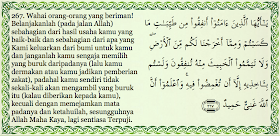 267. Wahai orang-orang yang beriman!
Belanjakanlah (pada jalan Allah)
sebahagian dari hasil usaha kamu yang
baik-baik dan sebahagian dari apa yang
Kami keluarkan dari bumi untuk kamu
dan janganlah kamu sengaja memilih
yang buruk daripadanya (lalu kamu
dermakan atau kamu jadikan pemberian
zakat), padahal kamu sendiri tidak
sekali-kali akan mengambil yang buruk
itu (kalau diberikan kepada kamu),
kecuali dengan memejamkan mata
padanya dan ketahuilah, sesungguhnya
Allah Maha Kaya, lagi sentiasa Terpuji.
يَا أَيُّهَا الَّذِينَ آمَنُوا أَنْفِقُوا مِنْ طَيِّبَاتِ مَا
كَسَبْتُمْ وَمِمَّا أَخْرَجْنَا لَكُمْ مِنَ الْأَرْضِ
وَلَا تَيَمَّمُوا الْخَبِيثَ مِنْهُ تُنْفِقُونَ وَلَسْتُمْ
بِآخِذِيهِ إِلَّا أَنْ تُغْمِضُوا فِيهِ وَاعْلَمُوا أَنَّ
اللَّهَ غَنِيٌّ حَمِيدٌ